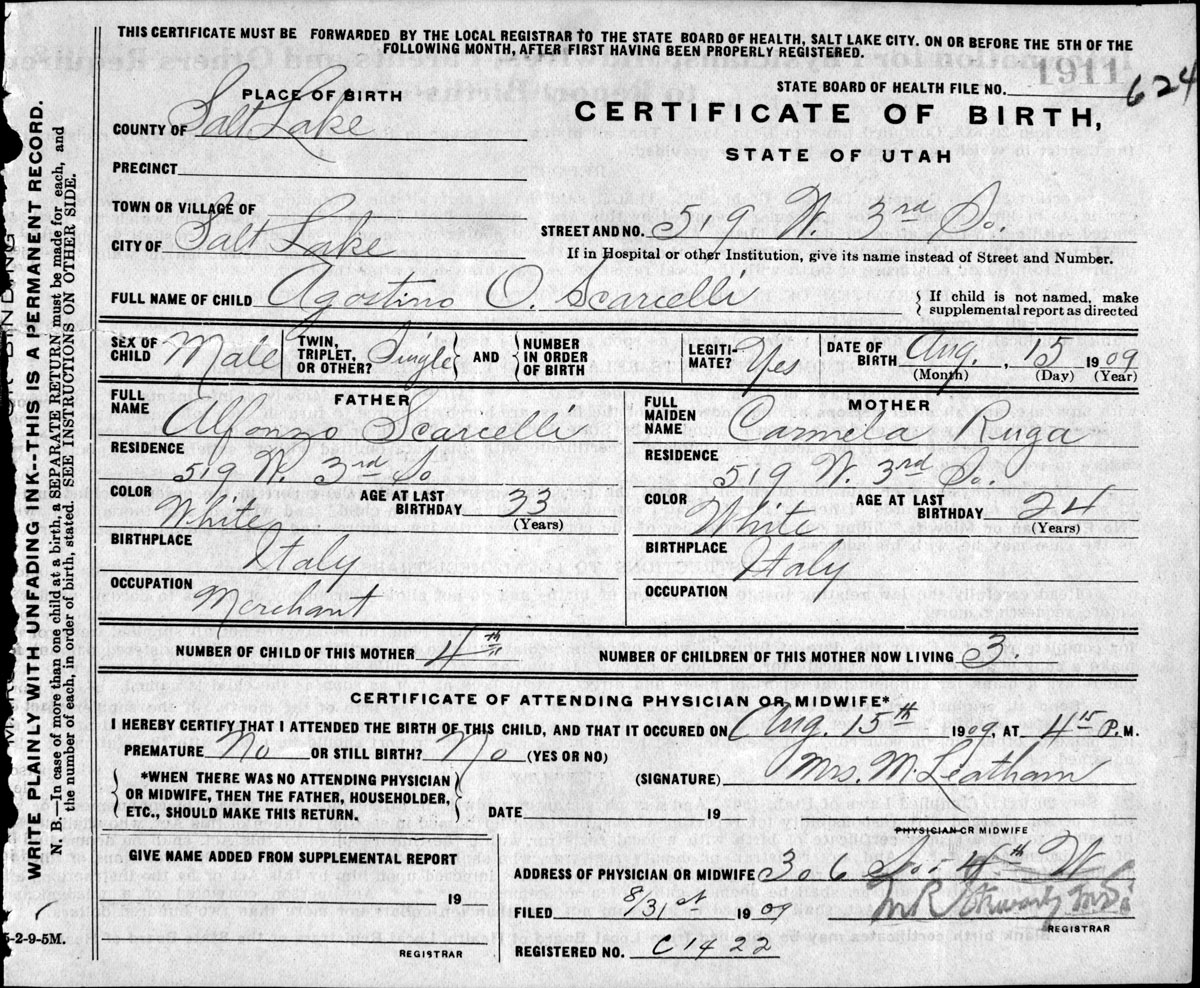 THIS CERTIFICATE MUST BE FORWARDED BY THE LOCAL REGISTRAR TO THE STATE BOARD OF HEALTH, SALT LAKE CITY. ON OR BEFORE THE 5TH OF THE
FOLLOWING MONTH, AFTER FIRST HAVING BEEN PROPERLY REGISTERED.
1911
STATE BOARD OF HEALTH FILE NO. 624
PLACE OF BIRTH
CERTIFICATE OF BIRTH,
STATE OF UTAH
COUNTY OF Salt Lake
PRECINCT
TOWN OR VILLAGE OF
CITY OF Salt Lake
STREET AND NO. 519 W. 3rd So.
If in Hospital or other Institution, give its name instead of Street and Number.
FULL NAME OF CHILD Agostino O. Scarcelli
If child is not named, make
supplemental report as directed
SEX OF CHILD Male
TWIN, TRIPLET, OR OTHER? Single AND NUMBER IN ORDER OF BIRTH
LEGITI-MATE? Yes
DATE OF BIRTH Aug. , 15 1909
(Month) (Day) (Year)
FATHER
FULL NAME Alfonzo Scarcelli
RESIDENCE 519 W. 3rd So
COLOR White AGE AT LAST BIRTHDAY 33
(Years)
BIRTHPLACE Italy
OCCUPATION Merchant
MOTHER
FULL MAIDEN NAME Carmela Ruga
RESIDENCE 519 W. 3rd So.
COLOR White AGE AT LAST BIRTHDAY 24
(Years)
BIRTHPLACE Italy
OCCUPATION
NUMBER OF CHILD OF THIS MOTHER 4th NUMBER OF CHILDREN OF THIS MOTHER NOW LIVING 3.
CERTIFICATE OF ATTENDING PHYSICIAN OR MIDWIFE*
I HEREBY CERTIFY THAT I ATTENDED THE BIRTH OF THIS CHILD, AND THAT IT OCCURED ON Aug. 15th 1909, AT 4 15 P. M.
PREMATURE No OR STILL BIRTH? No (YES OR NO)
*WHEN THERE WAS NO ATTENDING PHYSICIAN
OR MIDWIFE, THEN THE FATHER, HOUSEHOLDER,
ETC., SHOULD MAKE THIS RETURN.
(SIGNATURE) Mrs. M. Leatham
DATE 19
PHYSICIAN OR MIDWIFE
GIVE NAME ADDED FROM SUPPLEMENTAL REPORT
19
REGISTRAR
ADDRESS OF PHYSICIAN OR MIDWIFE 306 So. 4th W
FILED 8/31st 1909
REGISTRAR
REGISTERED NO. C1422
WRITE PLAINLY WITH UNFADING INK--THIS IS A PERMANENT RECORD.
N. B.—In case of more than one child at a birth, a SEPARATE RETURN must be made for each, and
the number of each, in order of birth, stated. SEE INSTRUCTIONS ON OTHER SIDE.
5-2-9-5M.